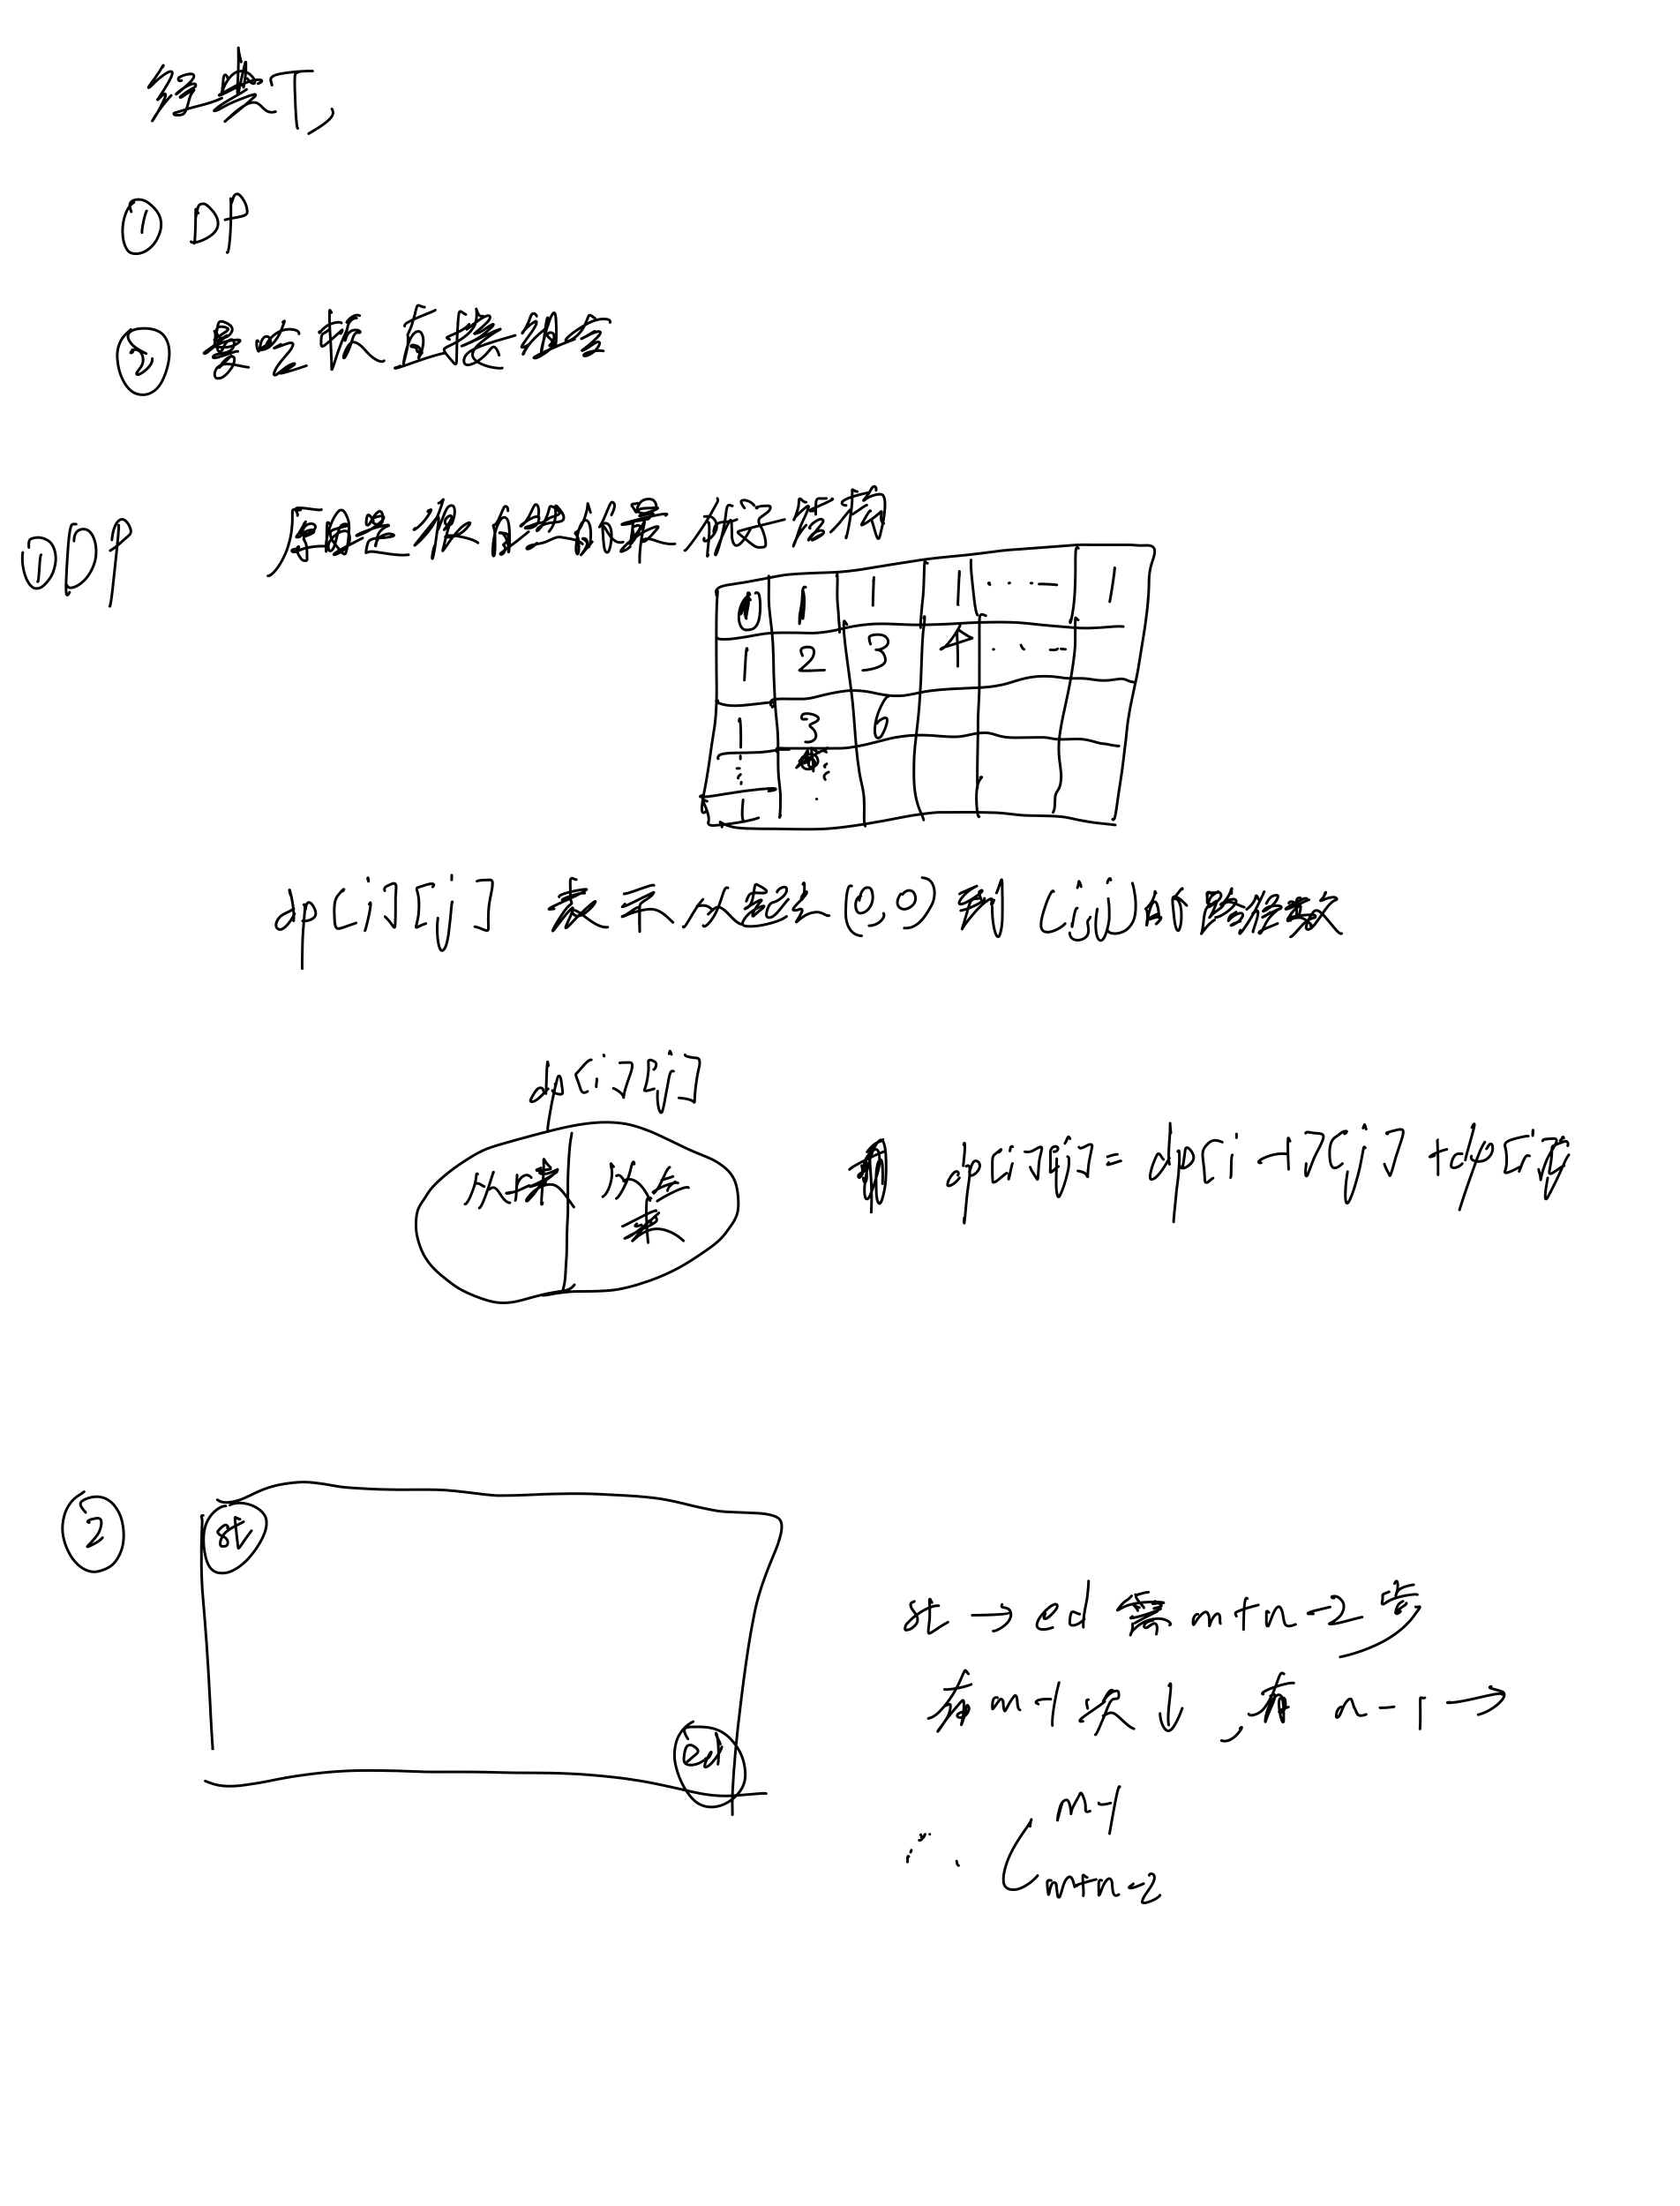 经典T,
① DP
② 复杂状直接组合
① DP
原因是很自然的最优子结构
0 1 1 1 ... 1
1 2 3 4 ...
1 3 6
⋮ ⋮
1
dp[i][j] 表示从起线(0,0)到(i,j)的路径数
dp[i][j]
从上来 从左来
dp[i][j] = dp[i-1][j] + dp[i][j
②
st
ed
st → ed 需 m+n-2 步
有 m-1 次 ↓ , 有 n-1 →
∴ C m-1 m+n-2